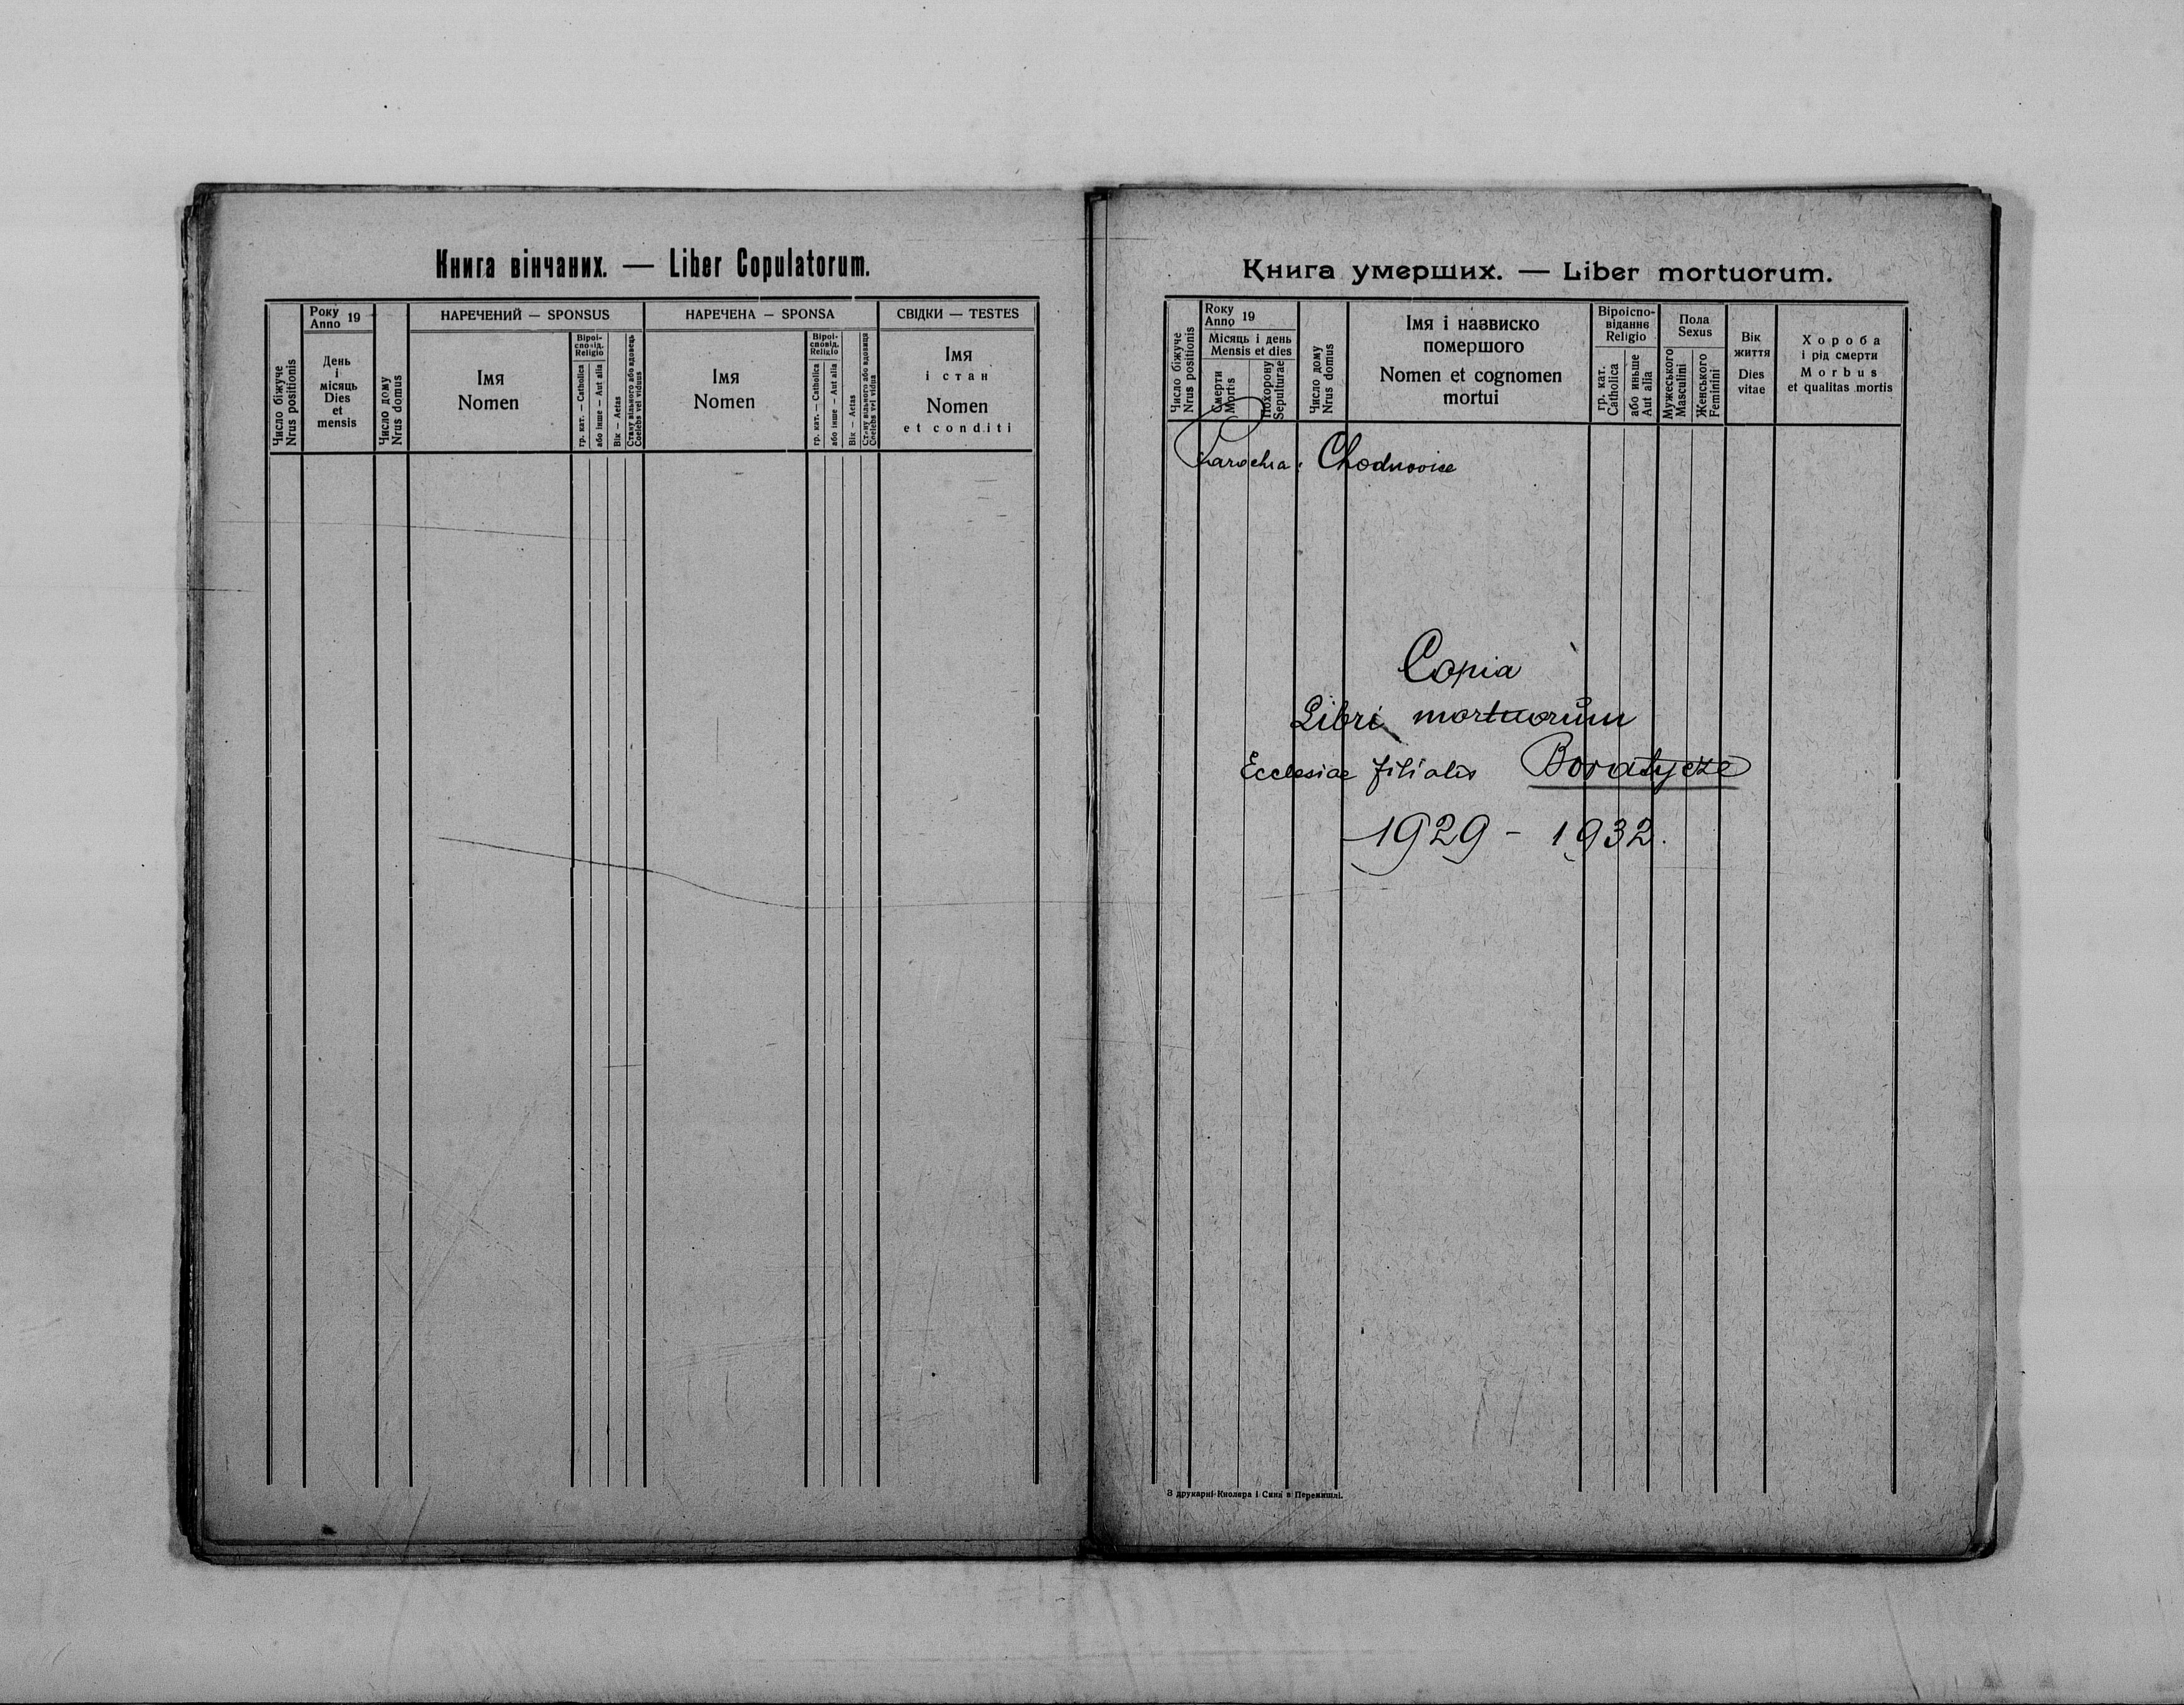 Книга вінчаних. — Liber Copulatorum.
Число біжуче
Nrus positionis
Року
Anno 19
День
і
місяць
Dies
et
mensis
Число дому
Nrus domus
НАРЕЧЕНИЙ — SPONSUS
Імя
Nomen
Віроі-
сповід.
Religio
гр. кат. — Catholica
або інше — Aut alia
Вік — Aetas
Стану вільного або вдовець
Coelebs vel viduus
НАРЕЧЕНА — SPONSA
Імя
Nomen
Віроі-
сповід.
Religio
гр. кат. — Catholica
або інше — Aut alia
Вік — Aetas
Стану вільного або вдовиця
Coelebs vel vidua
СВІДКИ — TESTES
Імя
і стан
Nomen
et conditi
Книга умерших. — Liber mortuorum.
Число біжуче
Nrus positionis
Року
Anno 19
Місяць і день
Mensis et dies
Смерти
Mortis
Похорону
Sepulturae
Число дому
Nrus domus
Імя і назвиско
помершого
Nomen et cognomen
mortui
Віроіспо-
віданнє
Religio
гр. кат.
Catholica
або иньше
Aut alia
Пола
Sexus
Мужеського
Masculini
Женського
Feminini
Вік
життя
Dies
vitae
Хороба
і рід смерти
Morbus
et qualitas mortis
Parochia: Chodnowice
Copia
Libri mortuorum
Ecclesiae filialis Boratycze
1929 - 1932.
З друкарні Кнолєра і Сина в Перемишлі.